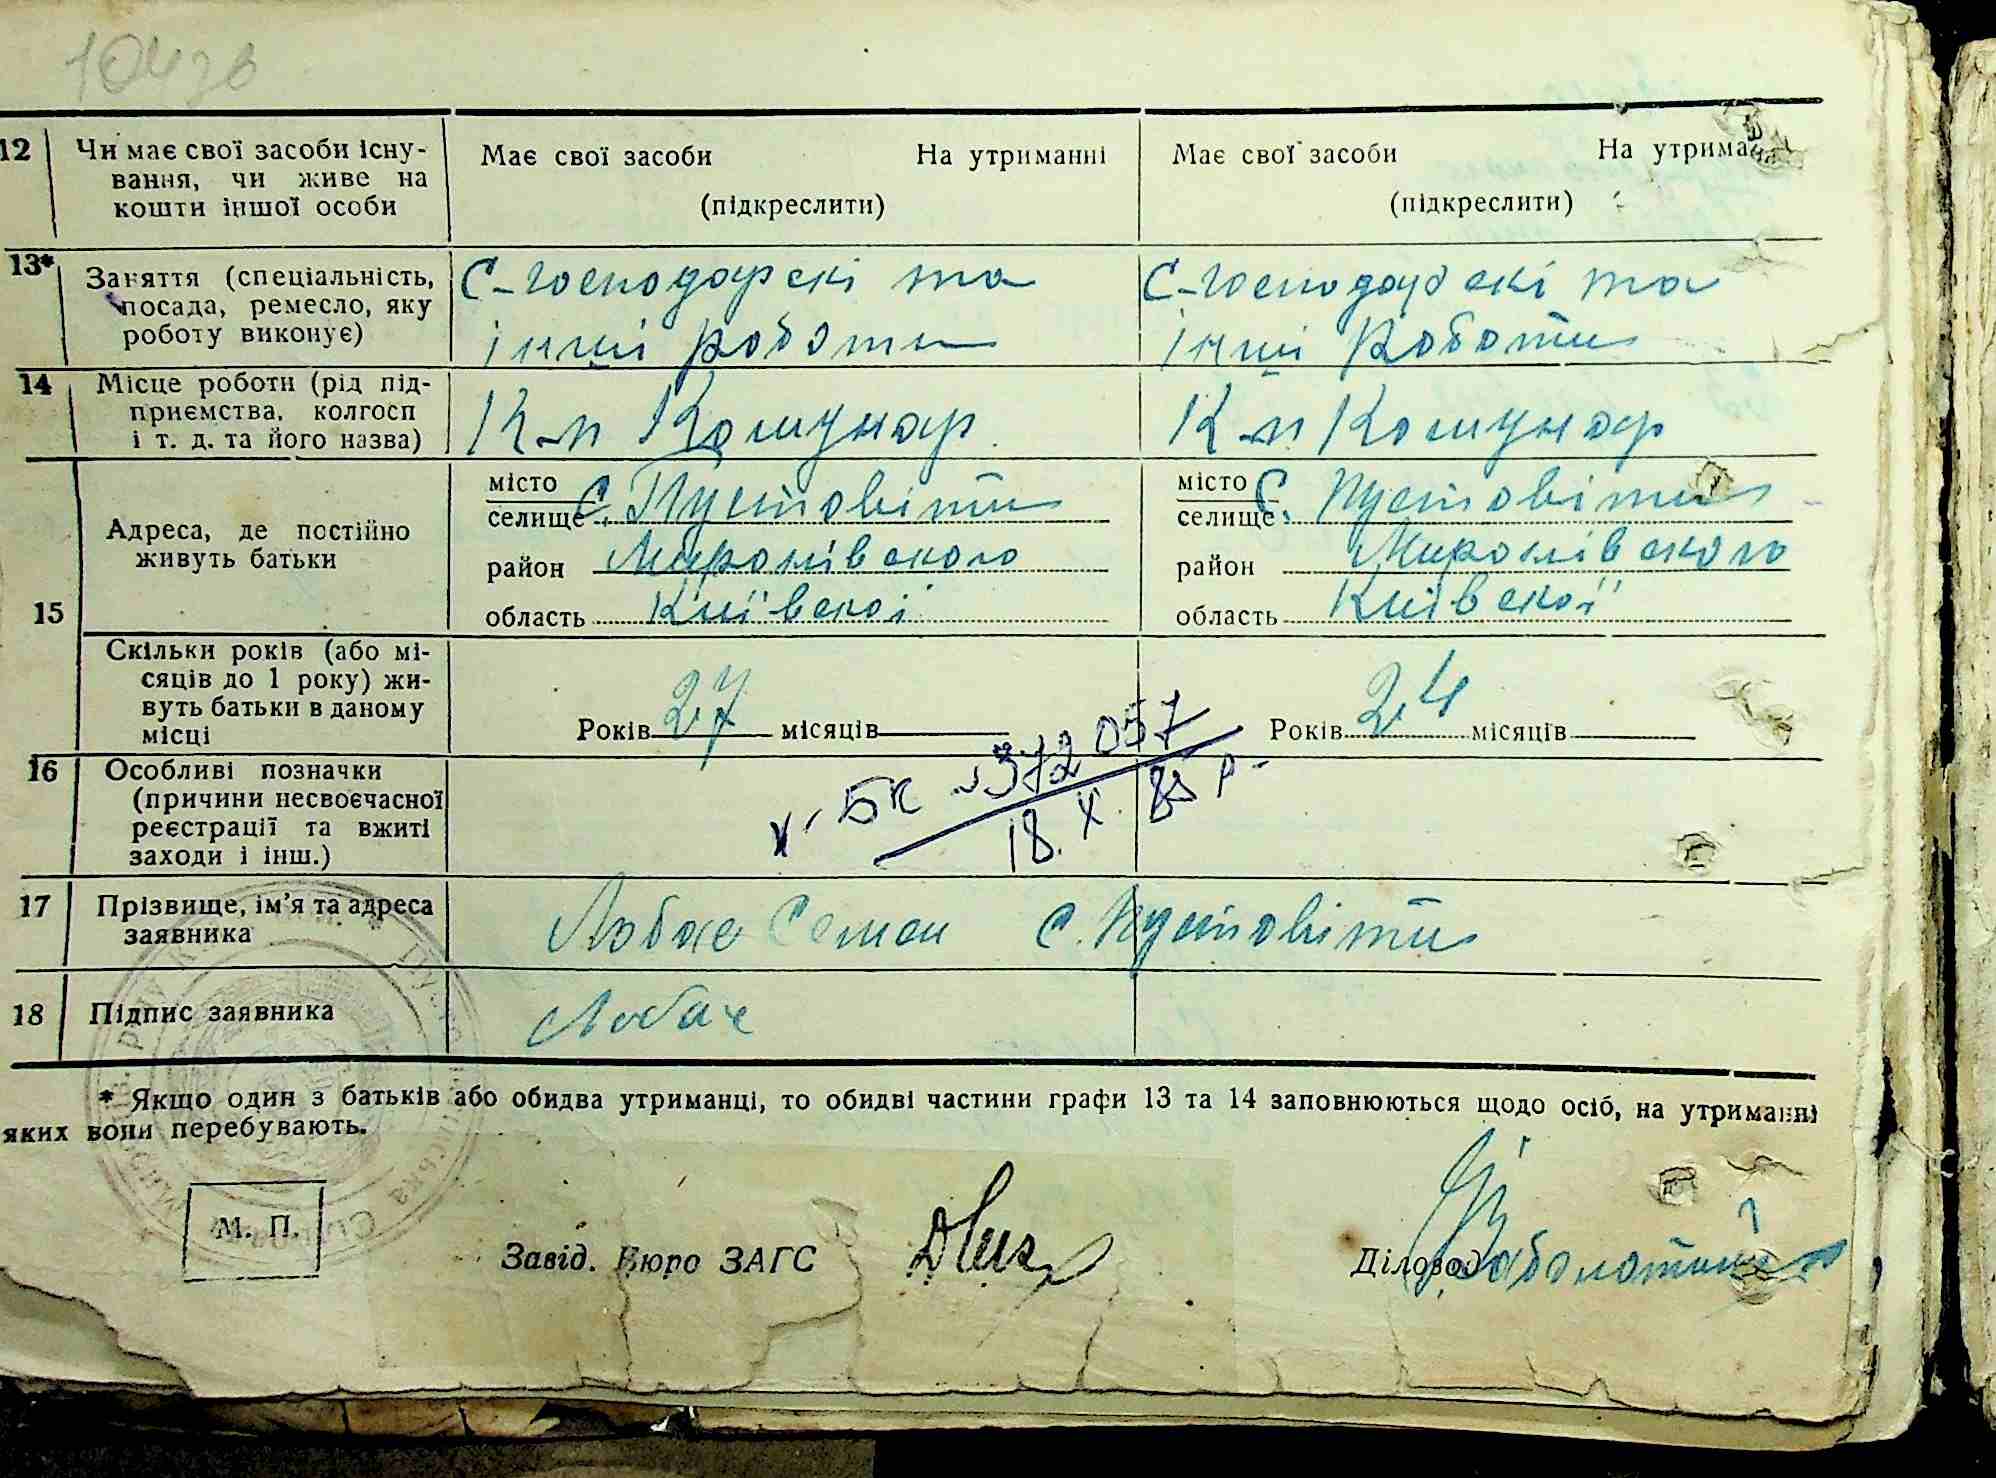 12 Чи має свої засоби існу-
вання, чи живе на
кошти іншої особи
Має свої засоби На утриманні
(підкреслити)
Має свої засоби На утрима
(підкреслити)
13* Заняття (спеціальність,
посада, ремесло, яку
роботу виконує)
С-господарскі та
інші роботи
С-господарскі та
інші роботи
14 Місце роботи (рід під-
приємства, колгосп
і т. д. та його назва)
К-п Комунар
К-п Комунар
15 Адреса, де постійно
живуть батьки
місто
селище С. Пустовіти
район Миронівского
область Київскої
місто
селище С. Пустовіти
район Миронівского
область Київскої
Скільки років (або мі-
сяців до 1 року) жи-
вуть батьки в даному
місці
Років 27 місяців
Років 24 місяців
16 Особливі позначки
(причини несвоєчасної
реєстрації та вжиті
заходи і інш.)
БК 372057
18. X. 83 р-
17 Прізвище, ім'я та адреса
заявника
Лобач Семен С. Пустовіти
18 Підпис заявника
Лобач
* Якщо один з батьків або обидва утриманці, то обидві частини графи 13 та 14 заповнюються щодо осіб, на утриманні
яких вони перебувають.
М. П.
Завід. Бюро ЗАГС
Діловод